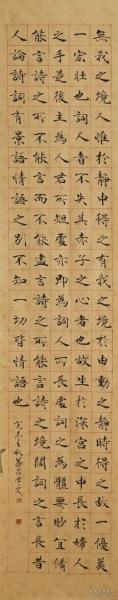 無我之境人惟於靜中得之有我之境於由動之靜時得之故一優美
一宏壯也詞人者不失其赤子之心者也故生於深宮之中長於婦人
之手是後主為人君所短處亦即為詞人所長處詞之為體要眇宜脩
能言詩之所不能言而不能盡言詩之所能言詩之境闊詞之言長昔
人論詩詞有景語情語之別不知一切皆情語也